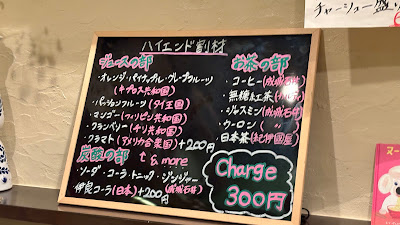 チャーシュー盛り
ハイエンド割材
ジュースの部
・オレンジ・パイナップル・グレープフルーツ
(キプロス共和国)
・パッションフルーツ(タイ王国)
・マンゴー(フィリピン共和国)
・クランベリー(チリ共和国)
・クラマト(アメリカ合衆国)+200円
炭酸の部 & more
・ソーダ・コーラ・トニック・ジンジャー
(成城石井)
伊良コーラ(日本)+200円
お茶の部
・コーヒー(成城石井)
・無糖紅茶
・ジャスミン(成城石井)
・ウーロン
・日本茶(紀伊國屋)
Charge
300円